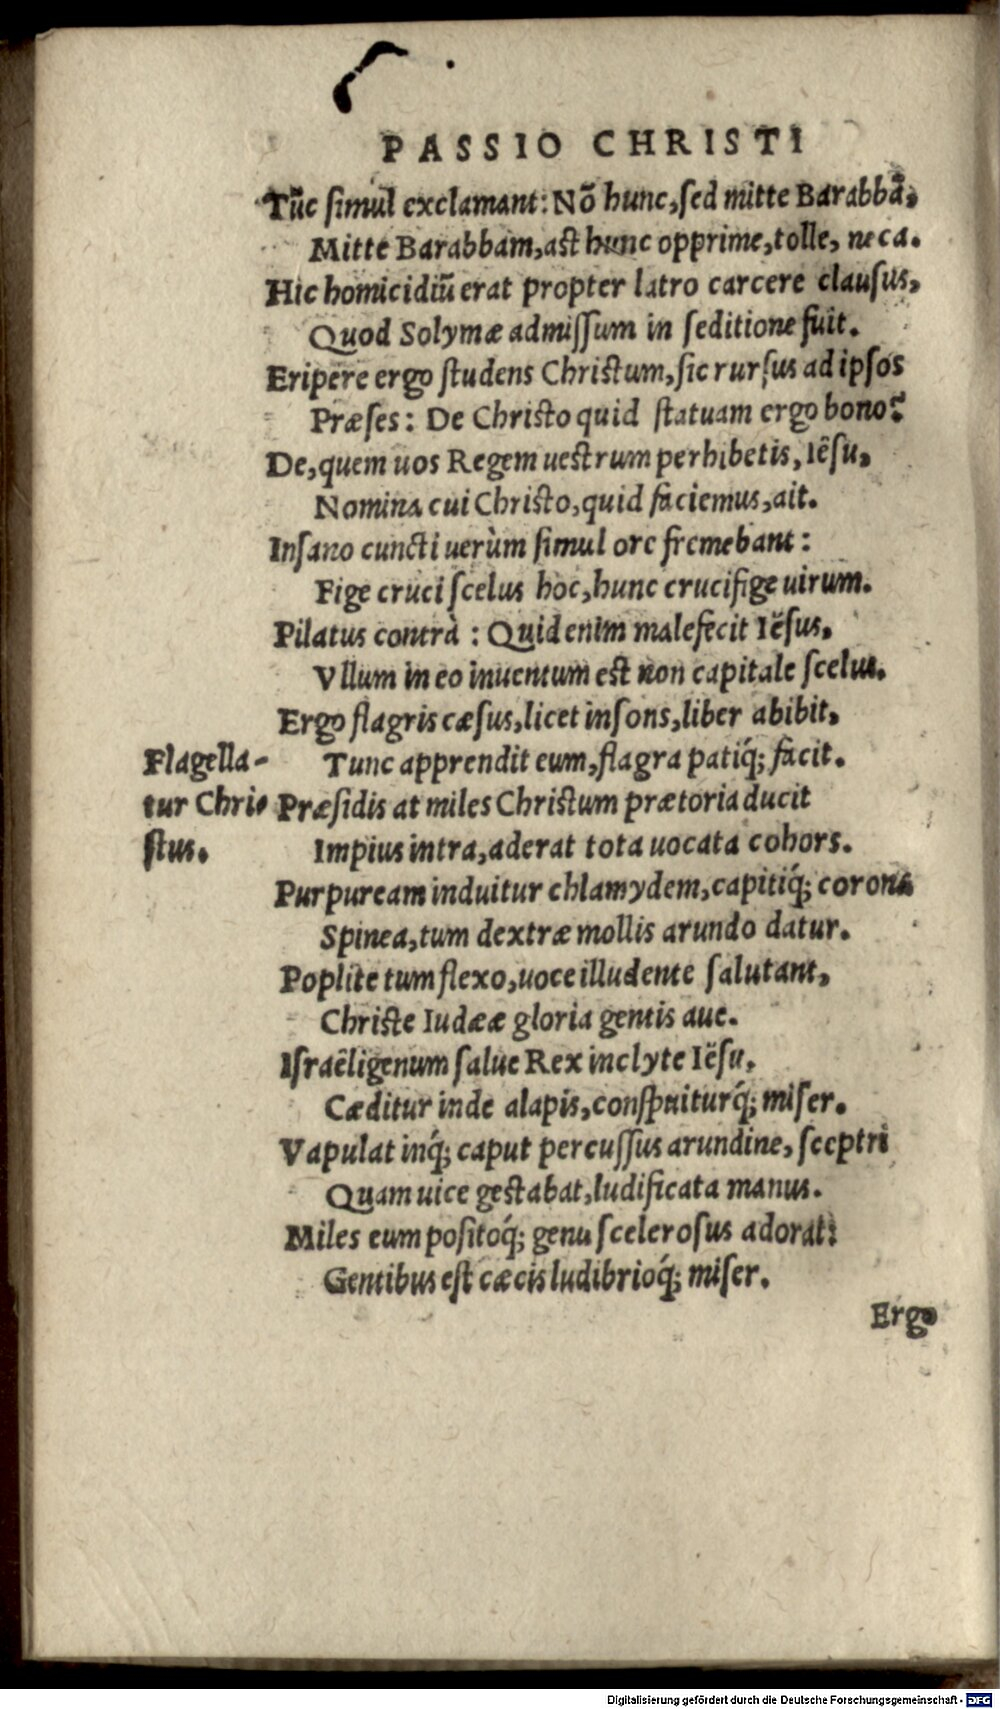 PASSIO CHRISTI
Tũc simul exclamant: Nõ hunc, sed mitte Barabbã,
Mitte Barabbam, ast hunc opprime, tolle, neca.
Hic homicidiũ erat propter latro carcere clausus,
Quod Solymæ admissum in seditione fuit.
Eripere ergo studens Christum, sic rursus ad ipsos
Præses: De Christo quid statuam ergo bono?
De, quem uos Regem uestrum perhibetis, Iësu,
Nomina cui Christo, quid faciemus, ait.
Insano cuncti uerùm simul ore fremebant:
Fige cruci scelus hoc, hunc crucifige uirum.
Pilatus contrà: Quid enim malefecit Iësus,
Vllum in eo inuentum est non capitale scelus.
Ergo flagris cæsus, licet insons, liber abibit,
Flagella-
Tunc apprendit eum, flagra patiq́; facit.
tur Chri-
Præsidis at miles Christum prætoria ducit
stus.
Impius intra, aderat tota uocata cohors.
Purpuream induitur chlamydem, capitiq́; corona
Spinea, tum dextræ mollis arundo datur.
Poplite tum flexo, uoce illudente salutant,
Christe Iudææ gloria gentis aue.
Israëligenum salue Rex inclyte Iësu,
Cæditur inde alapis, conspuiturq́; miser.
Vapulat inq́; caput percussus arundine, sceptri
Quam uice gestabat, ludificata manus.
Miles eum positoq́; genu scelerosus adorat:
Gentibus est cæcis ludibrioq́; miser.
Ergo
Digitalisierung gefördert durch die Deutsche Forschungsgemeinschaft - DFG